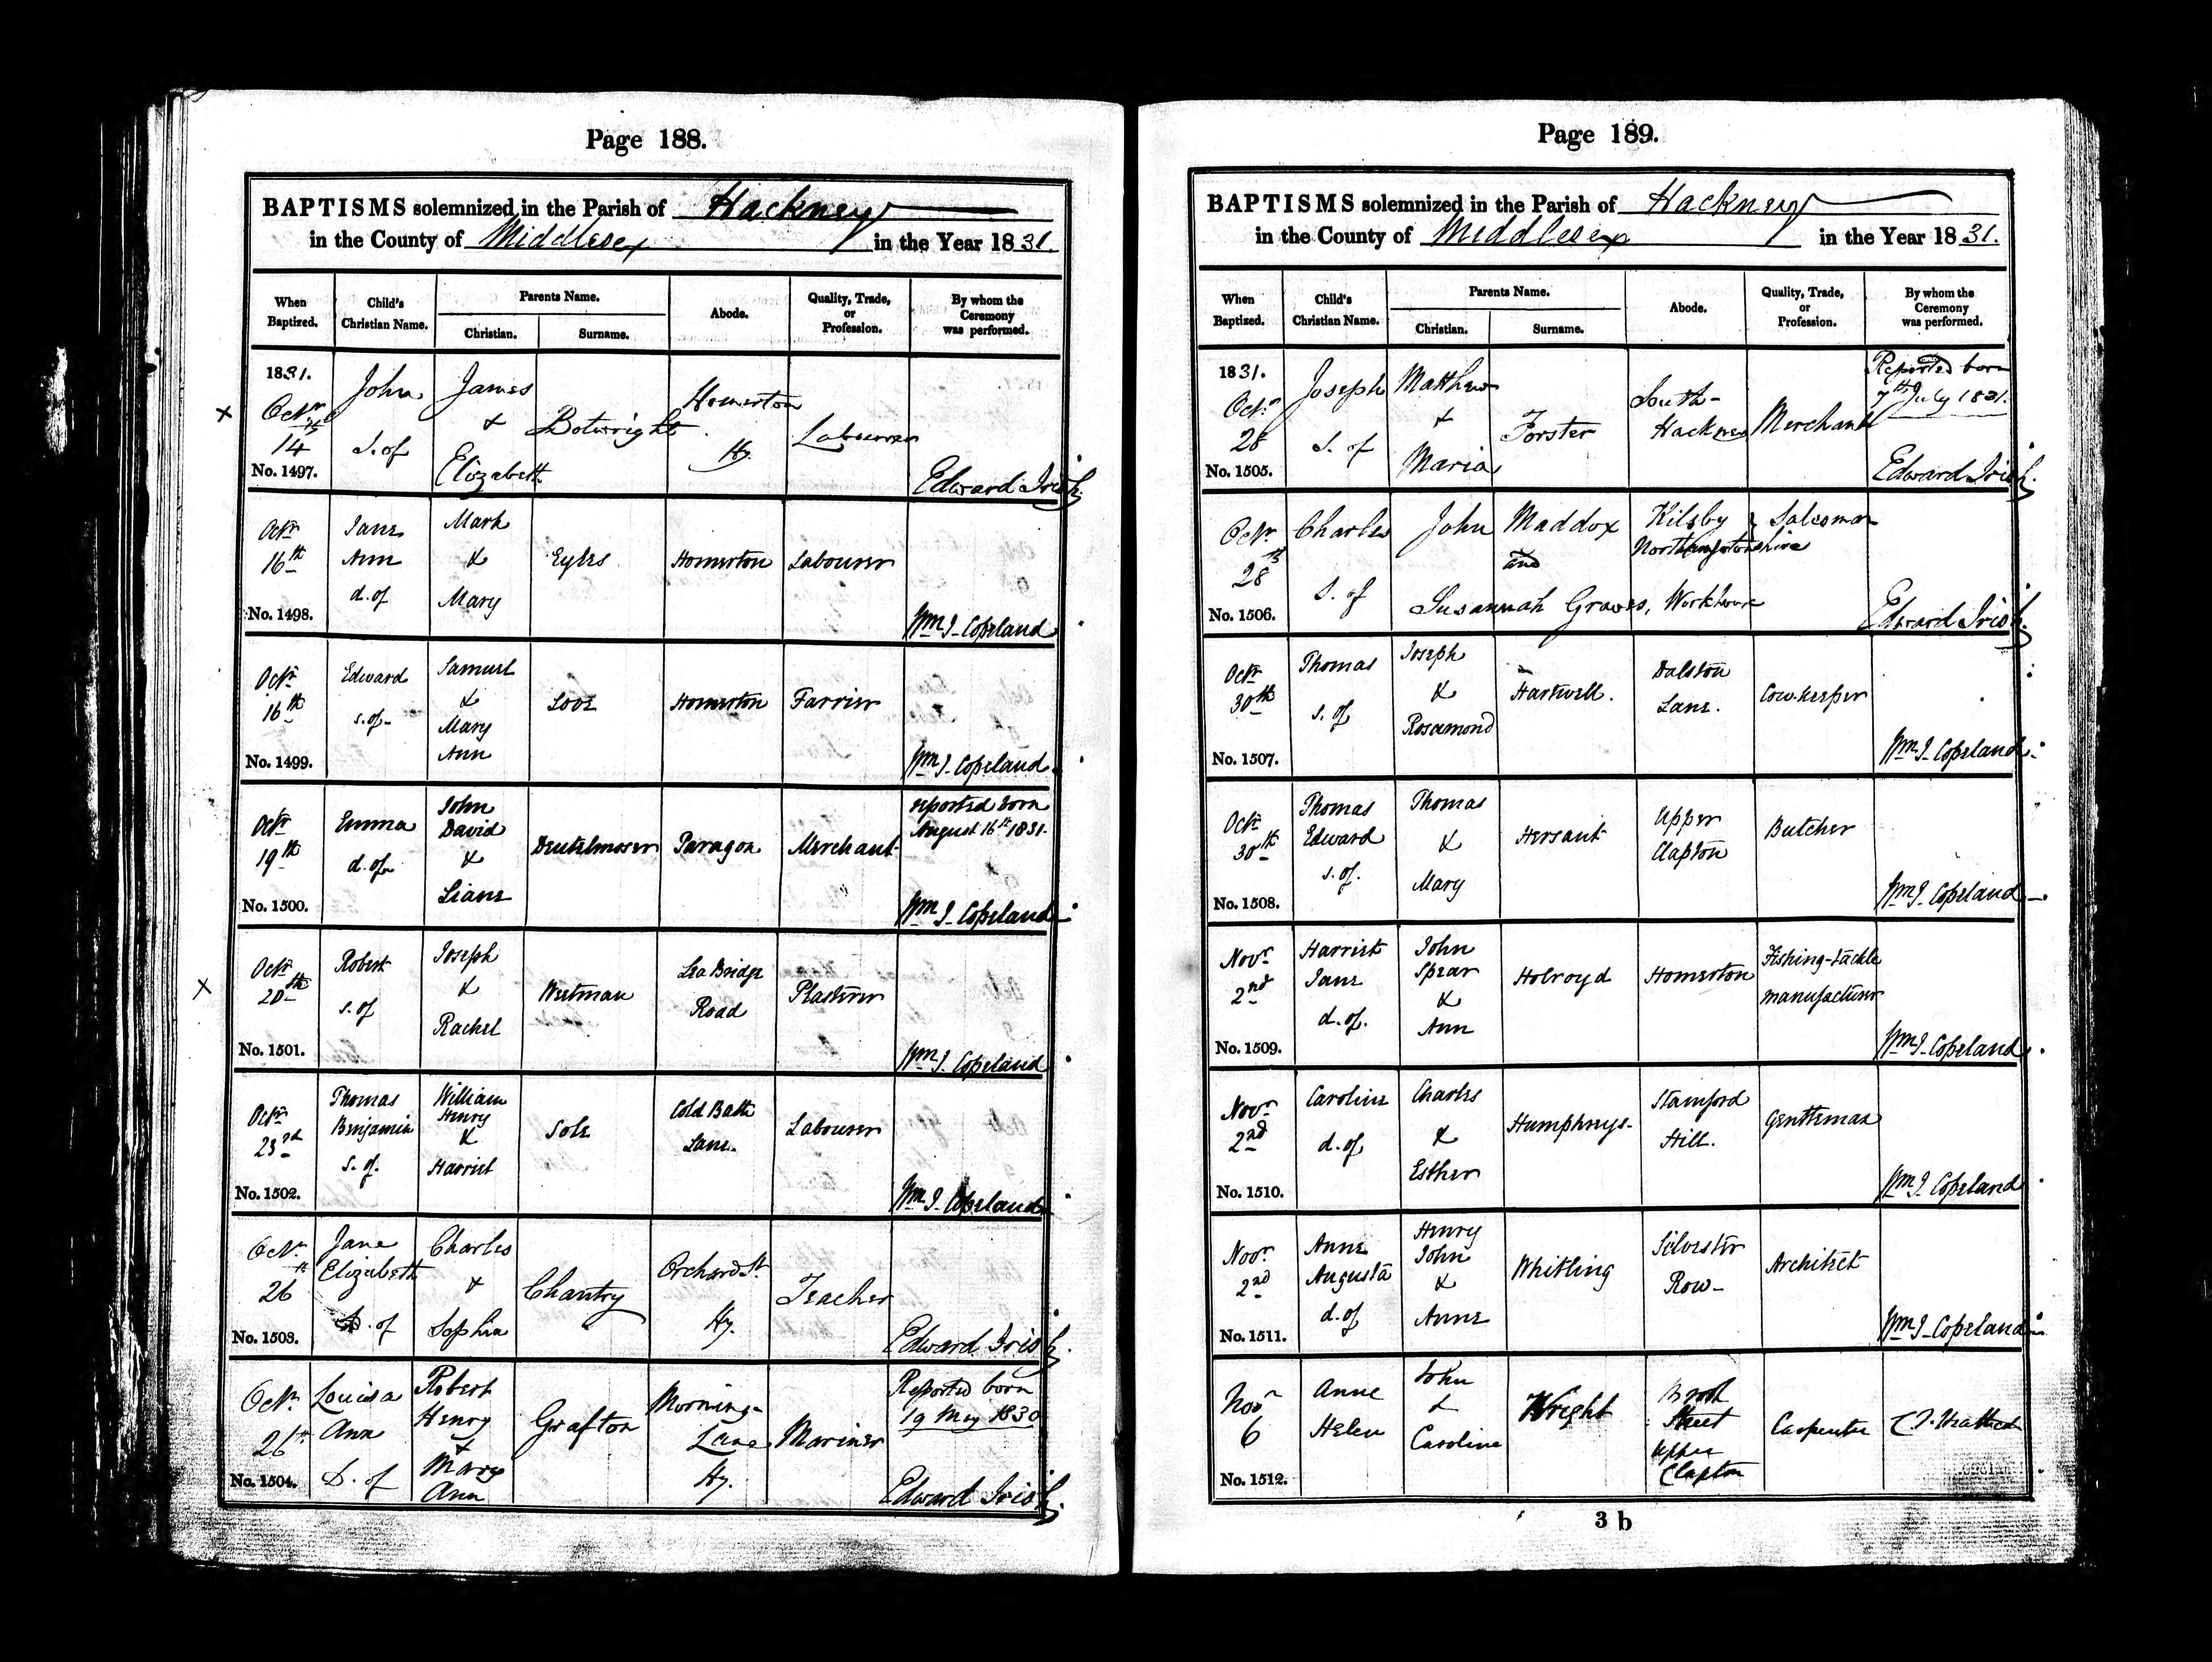 Page 188.
BAPTISMS solemnized in the Parish of Hackney
in the County of Middlesex in the Year 1831.
When Baptized. Child's Christian Name. Parents Name. Abode. Quality, Trade, or Profession. By whom the Ceremony was performed.
Christian. Surname.
1831.
Octr 14th
No. 1497.
John
S. of
James
&
Elizabeth
Botwright
Homerton
Hy.
Labourer
Edward Irish
Octr
16th
No. 1498.
Jane
Ann
d. of
Mark
&
Mary
Eyles
Homerton
Labourer
Wm J. Copeland
Octr
16th
No. 1499.
Edward
s. of
Samuel
&
Mary
Ann
Love
Homerton
Farrier
Wm J. Copeland
Octr
19th
No. 1500.
Emma
d. of
John
David
&
Liane
Deutelmoser
Paragon
Merchant
reported born
August 16th 1831.
Wm J. Copeland
Octr
20th
No. 1501.
Robert
s. of
Joseph
&
Rachel
Westman
Lea Bridge
Road
Plasterer
Wm J. Copeland
Octr
23rd
No. 1502.
Thomas
Benjamin
s. of
William
Henry
&
Harriet
Sole
Cold Bath
Lane.
Labourer
Wm J. Copeland
Octr
26
No. 1503.
Jane
Elizabeth
D. of
Charles
&
Sophia
Chantry
Orchard St.
Hy.
Teacher
Edward Irish
Octr
26th
No. 1504.
Louisa
Ann
D. of
Robert
Henry
&
Mary
Ann
Grafton
Morning
Lane
Hy.
Mariner
Reported born
19 May 1830
Edward Irish
Page 189.
BAPTISMS solemnized in the Parish of Hackney
in the County of Middlesex in the Year 1831.
When Baptized. Child's Christian Name. Parents Name. Abode. Quality, Trade, or Profession. By whom the Ceremony was performed.
Christian. Surname.
1831.
Octr
28
No. 1505.
Joseph
S. of
Matthew
&
Maria
Forster
South-
Hackney
Merchant
Reported born
7th July 1831.
Edward Irish
Octr
28th
No. 1506.
Charles
S. of
John Maddox
and
Susannah Graves, Workhouse
Kilsby
Northamptonshire
Salesman
Edward Irish
Octr
30th
No. 1507.
Thomas
s. of
Joseph
&
Rosamond
Hartwell.
Dalston
Lane.
Cow-keeper
Wm J. Copeland
Octr
30th
No. 1508.
Thomas
Edward
s. of.
Thomas
&
Mary
Hersant
Upper
Clapton
Butcher
Wm J. Copeland
Novr
2nd
No. 1509.
Harriet
Jane
d. of.
John
Spear
&
Ann
Holroyd
Homerton
Fishing-tackle
manufacturer
Wm J. Copeland
Novr
2nd
No. 1510.
Caroline
d. of
Charles
&
Esther
Humphreys.
Stamford
Hill.
Gentleman
Wm J. Copeland
Novr
2nd
No. 1511.
Anne
Augusta
d. of
Henry
John
&
Anne
Whitling
Silvester
Row
Architect
Wm J. Copeland
Novr
6
No. 1512.
Anne
Helen
John
&
Caroline
Wright
Brook
Street
Upper
Clapton
Carpenter
3 b